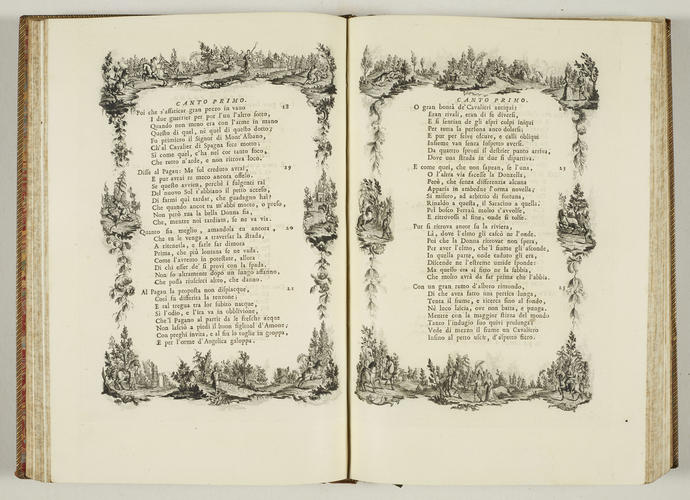 CANTO PRIMO.
Poi che s'affaticar gran pezzo in vano 18
I due guerrier per por l'un l'altro sotto,
Quando non meno era con l'arme in mano
Questo di quel, nè quel di questo dotto;
Fu primiero il Signor di Mont'Albano,
Ch'al Cavalier di Spagna fece motto;
Sì come quel, c'ha nel cor tanto foco,
Che tutto n'arde, e non ritrova loco.
Disse al Pagan: Me sol creduto avrai, 19
E pur avrai te meco ancora offeso.
Se questo avvien, perchè i fulgenti rai
Del nuovo Sol t'abbiano il petto acceso,
Di farmi quì tardar, che guadagno hai?
Che quando ancor tu m'abbi morto, o preso,
Non però tua la bella Donna fia,
Che, mentre noi tardiam, se ne va via.
Quanto fia meglio, amandola tu ancora, 20
Che tu le venga a traversar la strada,
A ritenerla, e farle far dimora
Prima, che più lontana se ne vada.
Come l'avremo in potestate, allora
Di chi esser de' si provi con la spada.
Non so altramente dopo un lungo affanno,
Che possa riuscirci altro, che danno.
Al Pagan la proposta non dispiacque, 21
Così fu differita la tenzone;
E tal tregua tra lor subito nacque,
Sì l'odio, e l'ira va in obblivione,
Che'l Pagano al partir da le fresche acque
Non lasciò a piedi il buon figliuol d'Amone;
Con preghi invita, e al fin lo toglie in groppa,
E per l'orme d'Angelica galoppa.
CANTO PRIMO.
O gran bontà de' Cavalieri antiqui!
Eran rivali, eran di fe diversi,
E si sentian de gli aspri colpi iniqui
Per tutta la persona anco dolersi;
E pur per selve oscure, e calli obliqui
Insieme van senza sospetto aversi.
Da quattro sproni il destrier punto arriva,
Dove una strada in due si dipartiva.
E come quei, che non sapean, se l'una,
O l'altra via facesse la Donzella,
Però, che senza differenzia alcuna
Apparia in ambedue l'orma novella;
Si misero, ad arbitrio di fortuna,
Rinaldo a questa, il Saracino a quella.
Pel bosco Ferraù molto s'avvolse,
E ritrovossi al fine, onde si tolse.
Pur si ritrova ancor su la riviera,
Là, dove l'elmo gli cascò ne l'onde.
Poi che la Donna ritrovar non spera,
Per aver l'elmo, che'l fiume gli asconde,
In quella parte, onde caduto gli era,
Discende ne l'estreme umide sponde:
Ma quello era sì fitto ne la sabbia,
Che molto avrà da far prima che l'abbia.
Con un gran ramo d'albero rimondo,
Di che avea fatto una pertica lunga,
Tenta il fiume, e ricerca sino al fondo,
Nè loco lascia, ove non batta, e punga.
Mentre con la maggior stizza del mondo
Tanto l'indugio suo quivi prolunga;
Vede di mezzo il fiume un Cavaliero
Insino al petto uscir, d'aspetto fiero.